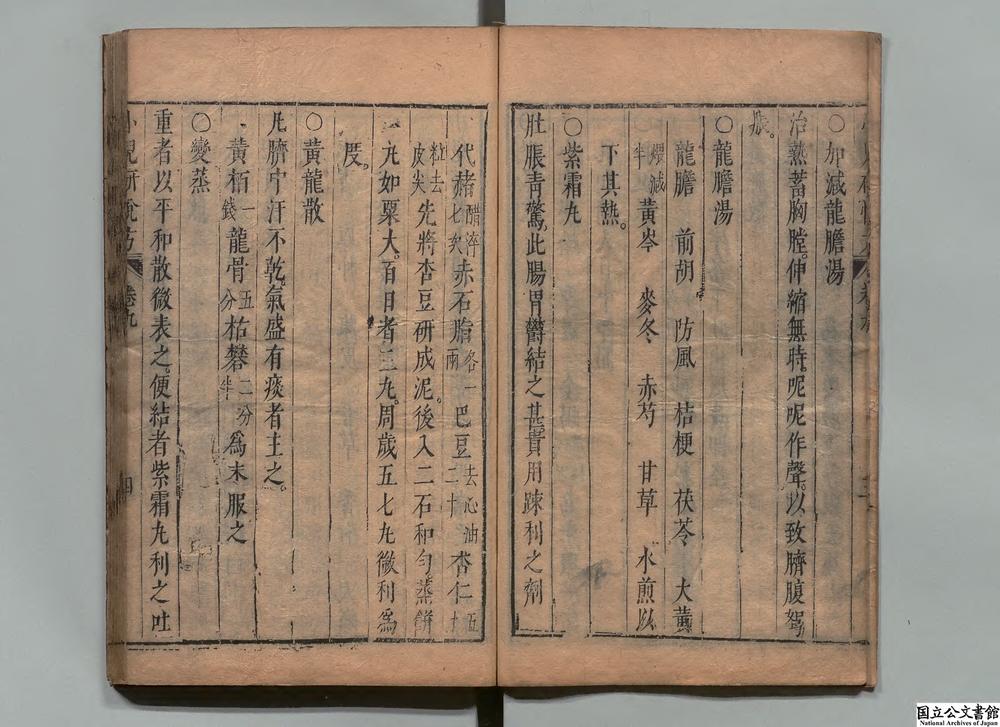 〇加減龍膽湯
治熱蓄胸膛。伸縮無時。呢呢作聲。以致臍腹
脹。
〇龍膽湯
龍膽 前胡 防風 桔梗 茯苓 大黃
煨減半 黃岑 麥冬 赤芍 甘草 水煎以
下其熱。
〇紫霜丸
肚脹青驚。此腸胃欝結之甚。貴用疎利之劑
代赭醋淬七次赤石脂各一兩巴豆去心油二十杏仁五十
粒去皮尖 先將杏豆研成泥。後入二石和勻蒸餅
丸如粟大。百日者三丸。周歲五七丸微利為
度。
〇黃龍散
凡臍中汗不乾。氣盛有痰者主之。
黃栢一錢龍骨五分枯礬二分半為末服之
〇變蒸
重者以平和散微表之。便結者紫霜丸利之吐
小兒研悅方 卷九 四
国立公文書館
National Archives of Japan